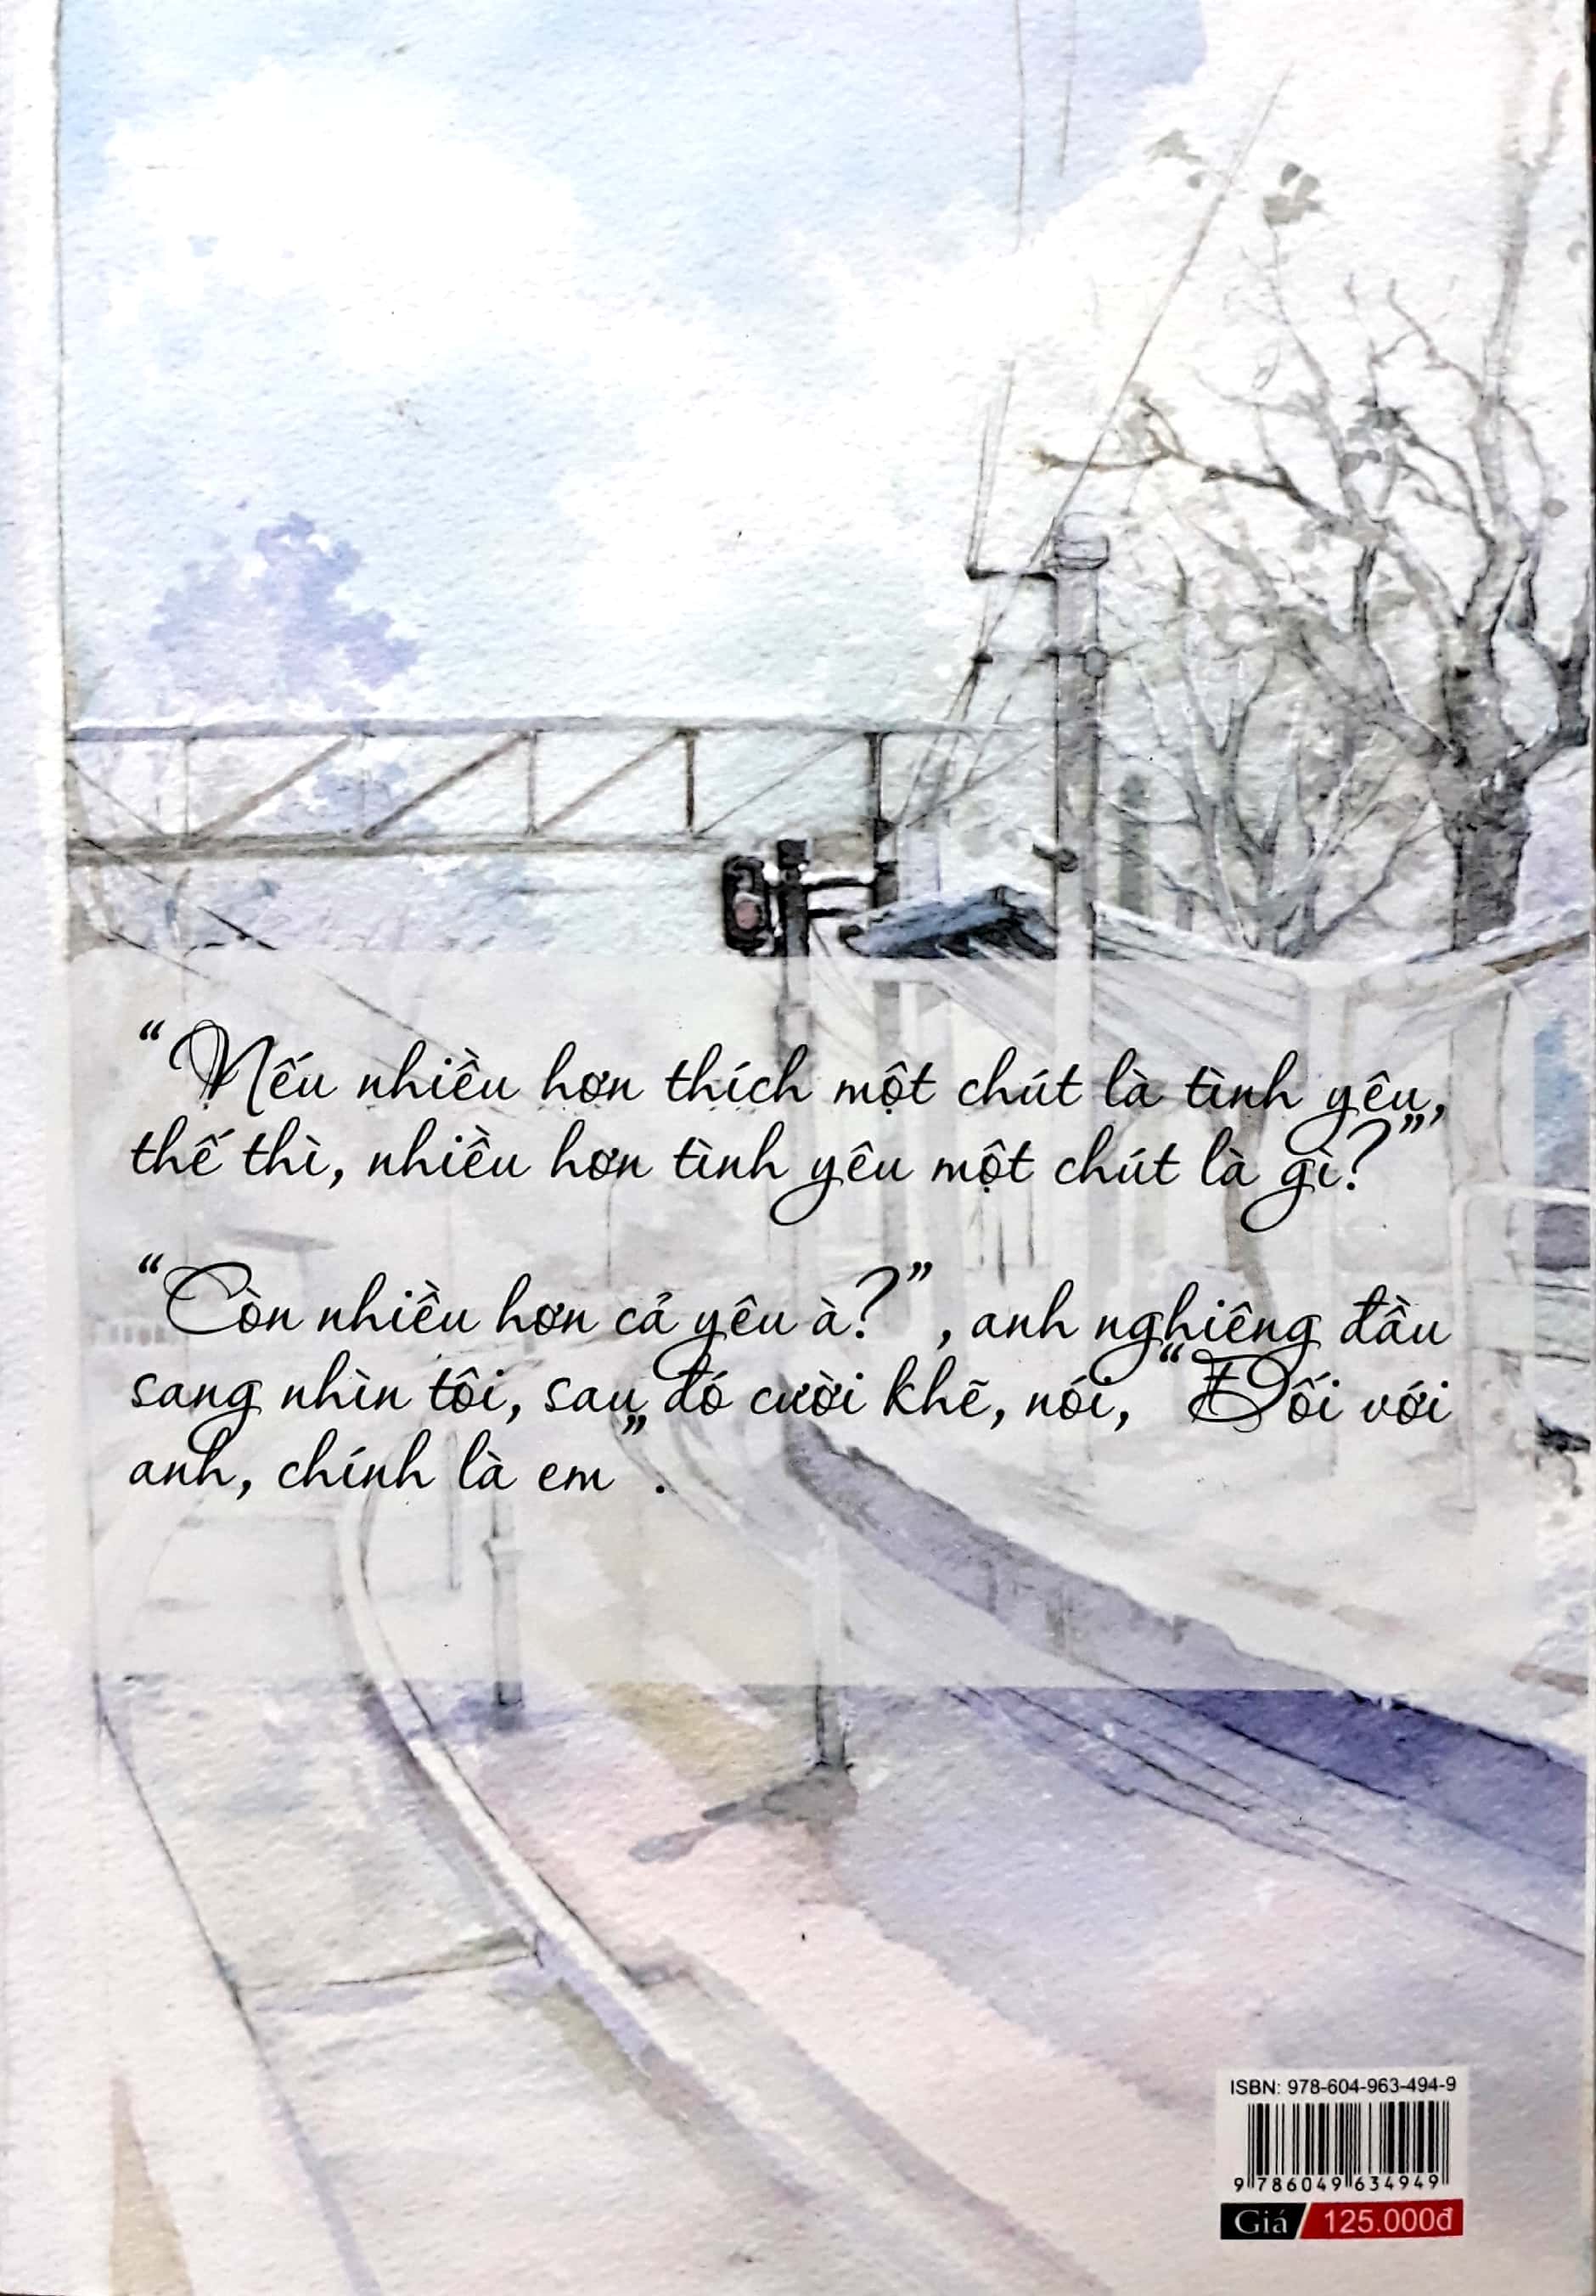 “Nếu nhiều hơn thích một chút là tình yêu,
thế thì, nhiều hơn tình yêu một chút là gì?”
“Còn nhiều hơn cả yêu à?”, anh nghiêng đầu
sang nhìn tôi, sau đó cười khẽ, nói, “Đối với
anh, chính là em”.
ISBN: 978-604-963-494-9
9 786049 634949
Giá 125.000đ